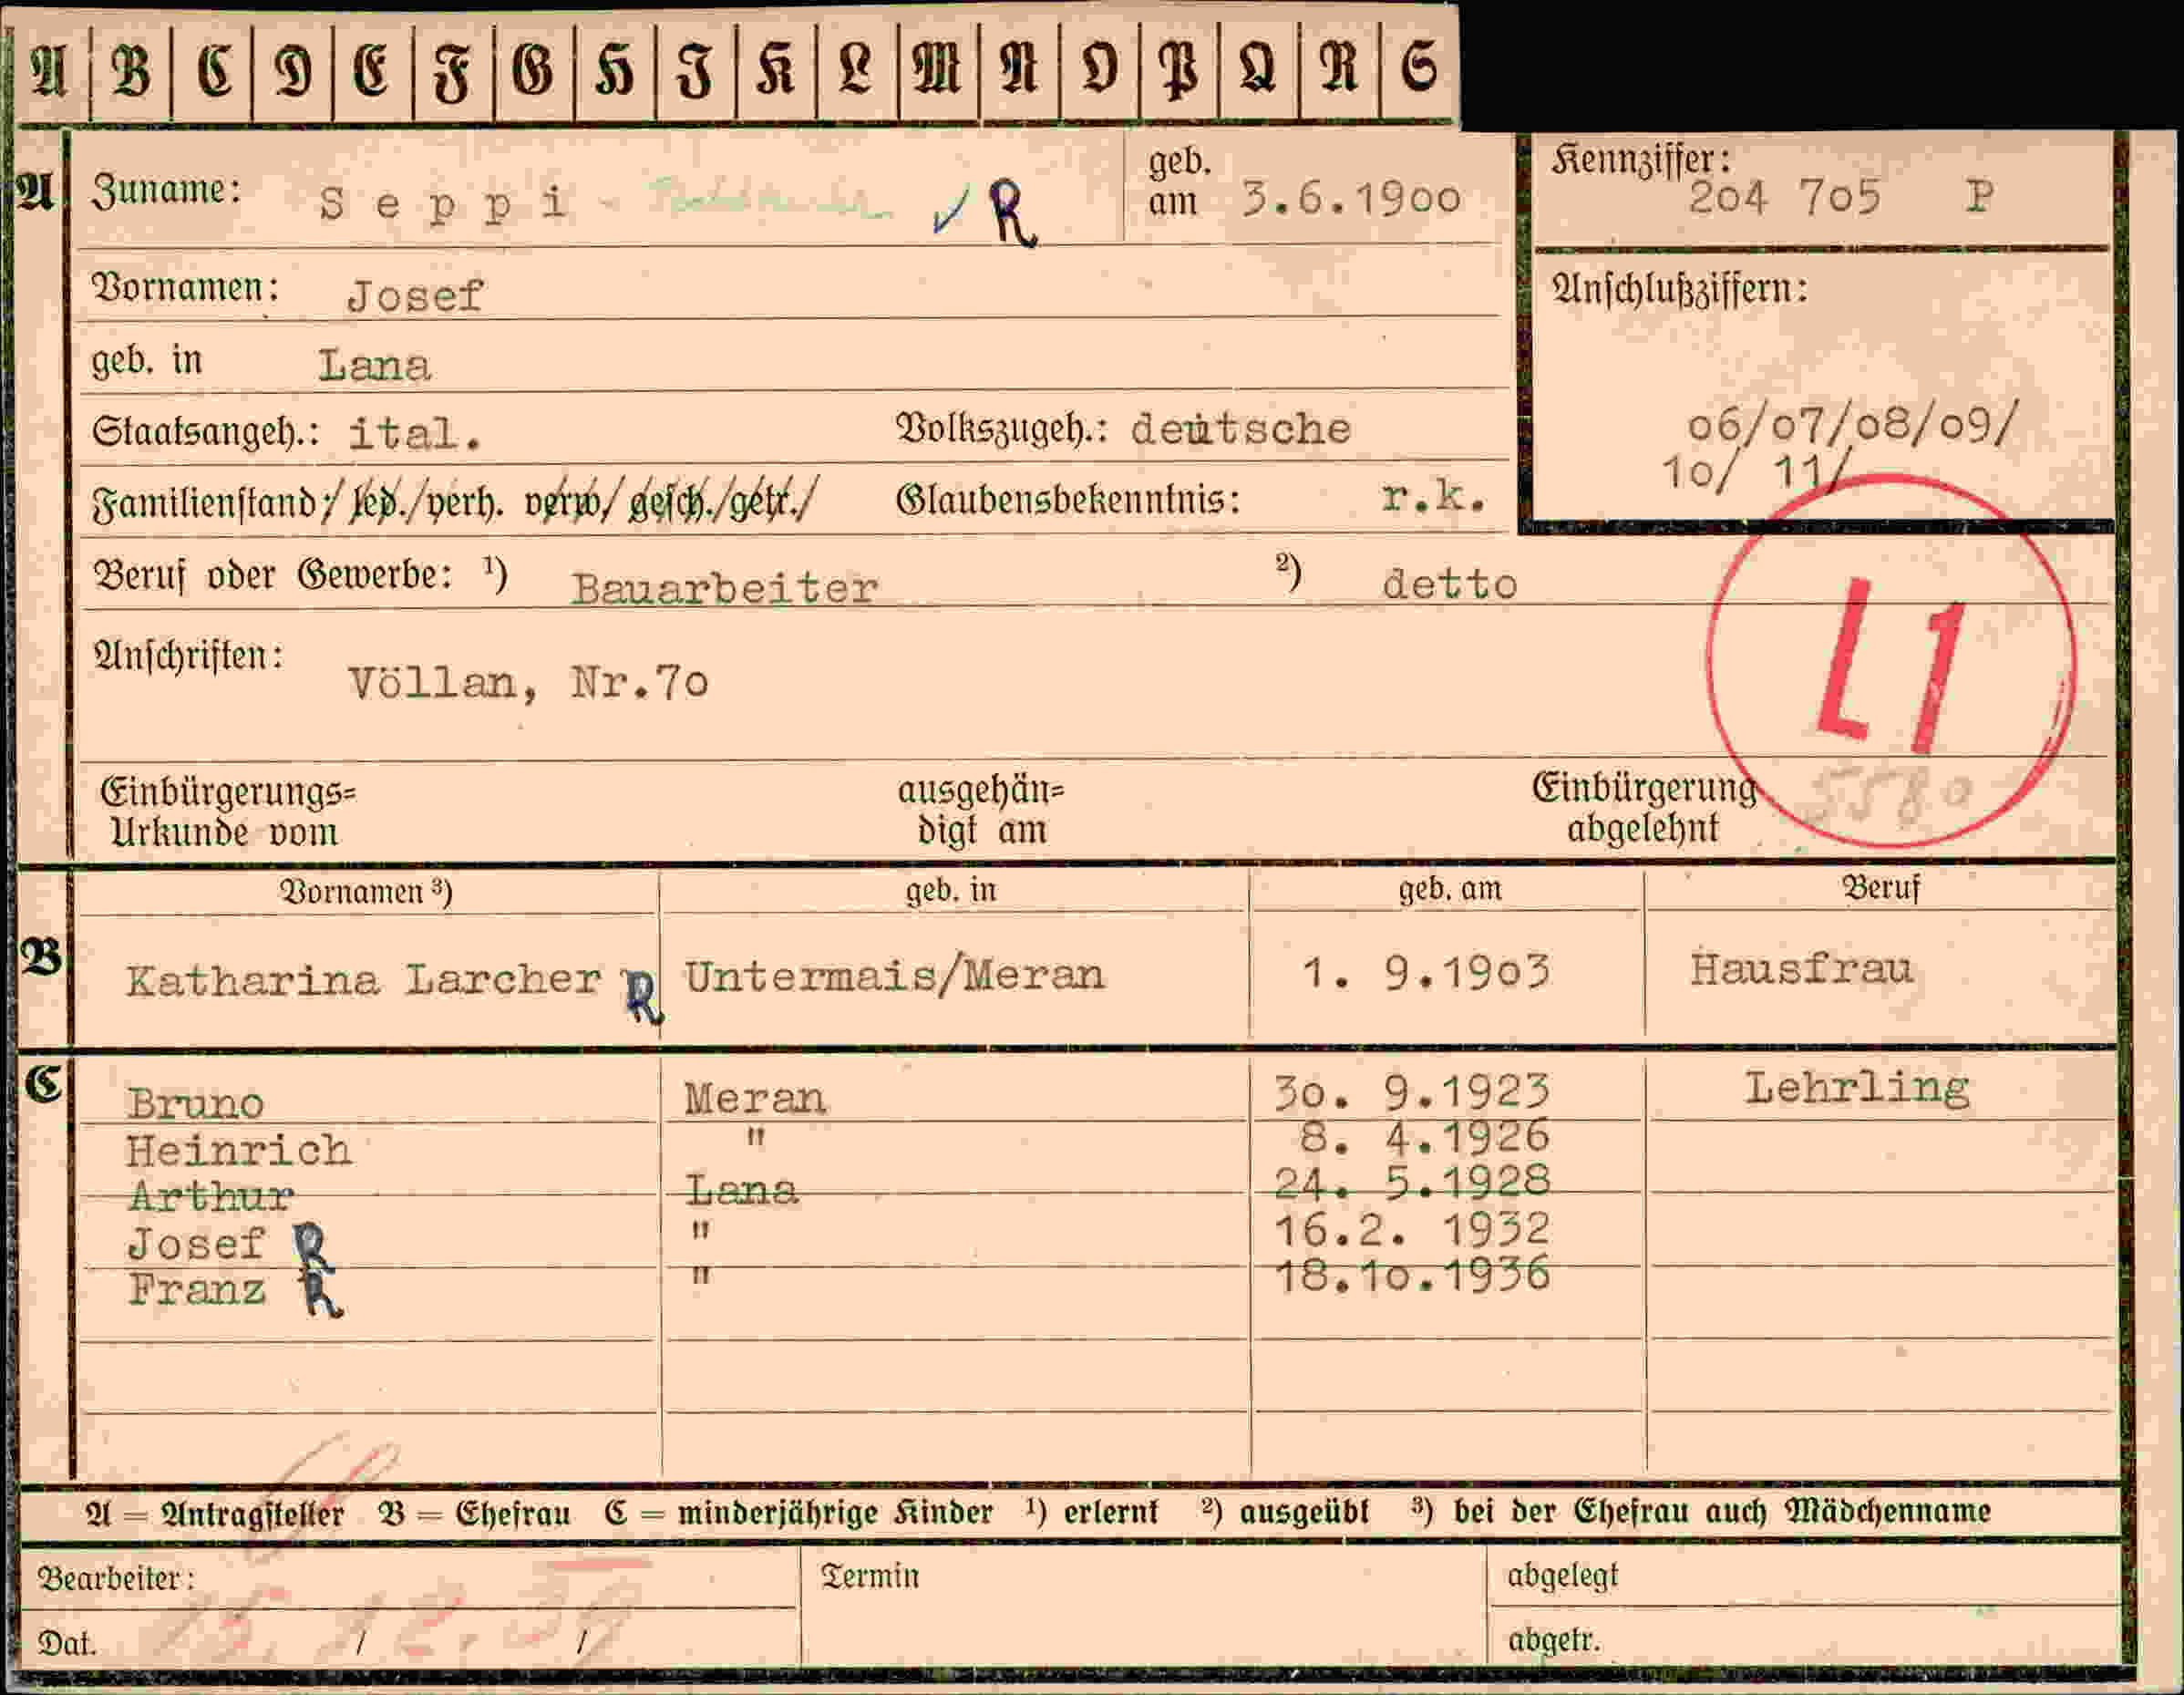 A B C D E F G H I K L M N O P Q R S
A Zuname: Seppi ✓ R geb. am 3.6.1900
Kennziffer: 204 705 P
Vornamen: Josef
Anschlußziffern:
geb. in Lana
Staatsangeh.: ital. Volkszugeh.: deutsche
06/07/08/09/
10/ 11/
Familienstand:/ led./verh. verw/ gesch./getr./ Glaubensbekenntnis: r.k.
Beruf oder Gewerbe: ¹) Bauarbeiter ²) detto
L1
Anschriften: Völlan, Nr.70
5580
Einbürgerungs= ausgehän= Einbürgerung
Urkunde vom digt am abgelehnt
Vornamen ³) geb. in geb. am Beruf
B Katharina Larcher R Untermais/Meran 1. 9.1903 Hausfrau
C Bruno Meran 30. 9.1923 Lehrling
Heinrich " 8. 4.1926
Arthur Lana 24. 5.1928
Josef R " 16.2. 1932
Franz R " 18.10.1936
A = Antragsteller B = Ehefrau C = minderjährige Kinder ¹) erlernt ²) ausgeübt ³) bei der Ehefrau auch Mädchenname
Bearbeiter: Termin abgelegt
Dat. 15. / 12. 39 / abgetr.